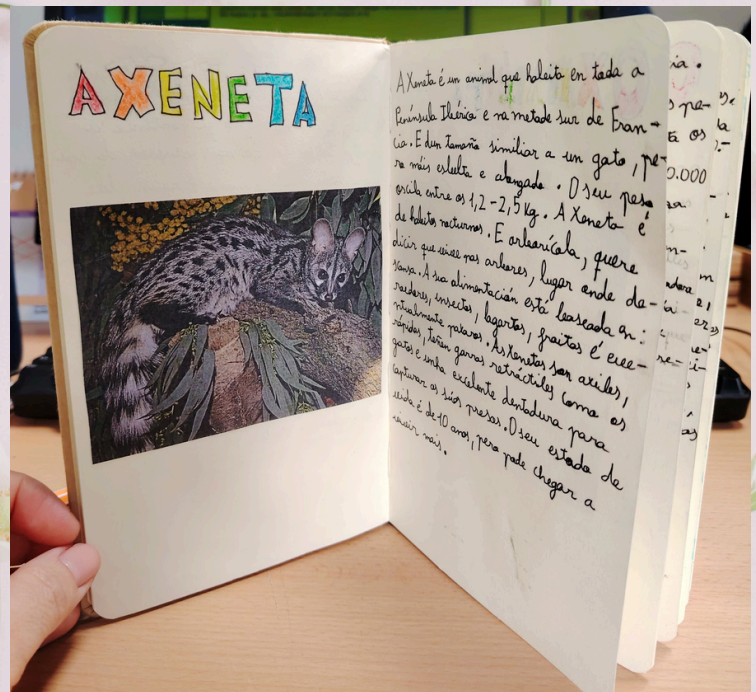 A XENETA
A Xeneta é un animal que habita en toda a
Península Ibérica e na metade sur de Fran-
cia. E dun tamaño similiar a un gato, pe-
ro máis esbelta e alongada. O seu peso
oscila entre os 1,2-2,5 Kg. A Xeneta é
de habitos nocturnos. E arborícola, quere
dicir que vive nas arbores, lugar onde de-
scansa. A sua alimentación está baseada en:
roedores, insectos, lagartos, froitos é eve-
ntualmente paxaros. As Xenetas son axiles,
rápidas, teñen garras retráctiles coma os
gatos e unha excelente dentadura para
capturar as súas presas. O seu estado de
vida é de 10 anos, pero pode chegar a
vivir mais.
ia.
pe-
os
0.000